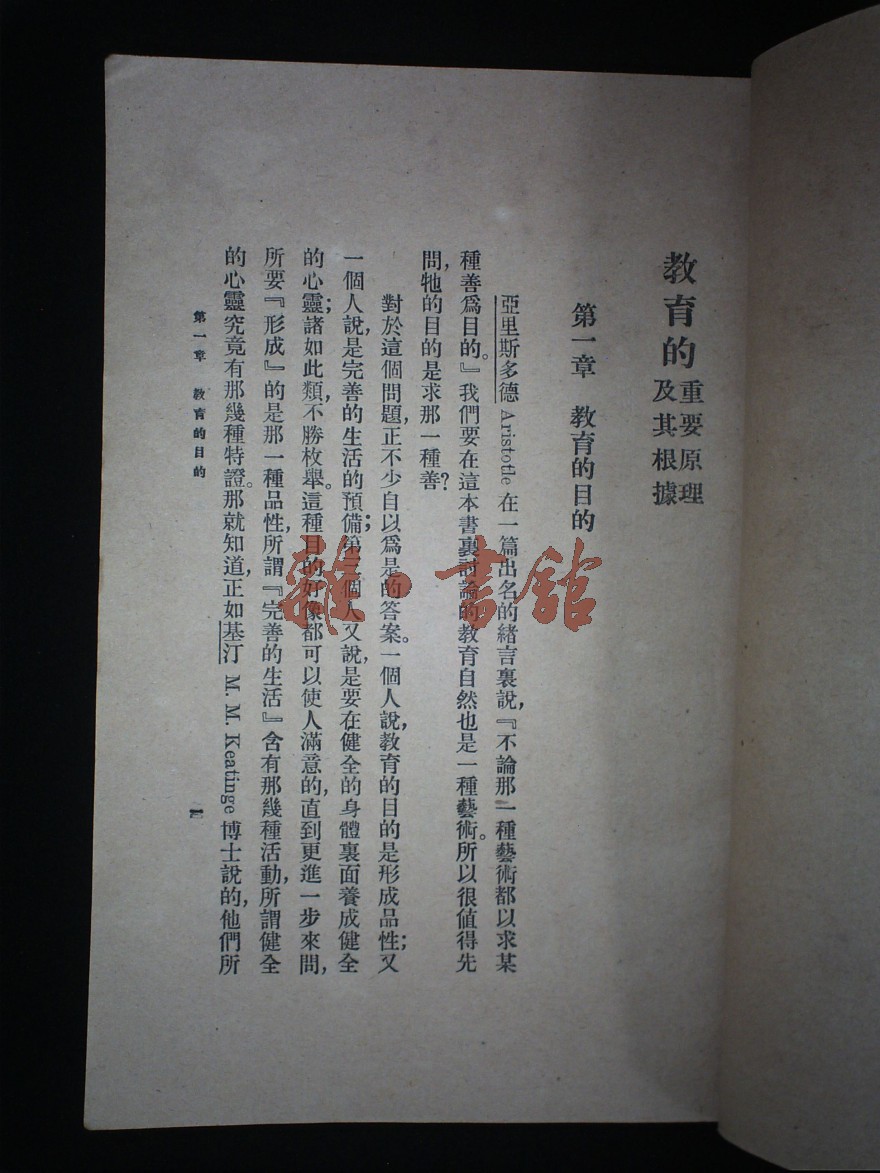 教育的重要原理
及其根據
第一章 教育的目的
亞里斯多德 Aristotle 在一篇出名的緒言裏說,『不論那一種藝術都以求某
種善爲目的。』我們要在這本書裏討論的教育自然也是一種藝術。所以很值得先
問,牠的目的是求那一種善?
對於這個問題,正不少自以爲是的答案。一個人說,教育的目的是形成品性;又
一個人說,是完善的生活的預備;第三個人又說,是要在健全的身體裏面養成健全
的心靈;諸如此類,不勝枚舉。這種目的好像都可以使人滿意的,直到更進一步來問,
所要『形成』的是那一種品性,所謂『完善的生活』含有那幾種活動,所謂健全
的心靈究竟有那幾種特證。那就知道,正如基汀 M. M. Keatinge 博士說的,他們所
第一章 教育的目的
一
雜·書館